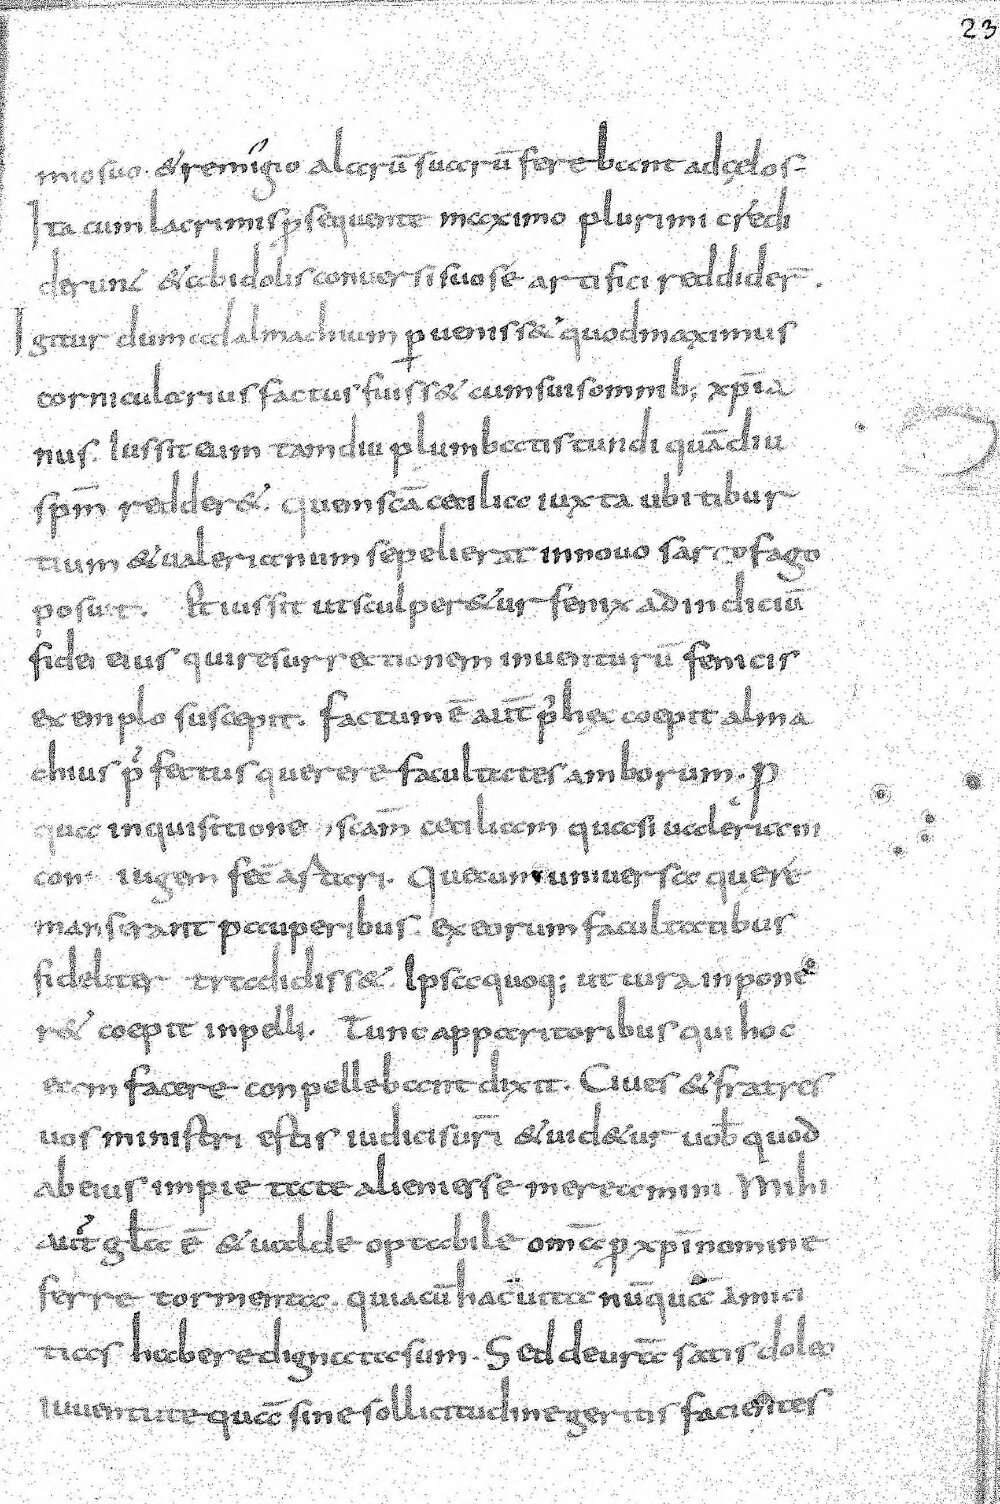 23
mio suo. & remigio alarū suarū ferebant ad cęlos.
Ita cum lacrimis p̄sequente maximo plurimi credi
derunt & ab idolis conversi suo se artifici reddider̄.
Igitur dum ad almachium p̱uenisset quod maximus
cornicularius factus fuiss& cum suis omnib; xp̄ia
nus. Iussit eum tamdiu plumbatis tundi quādiu
sp̄m redder&. Quem scā cecilia iuxta ubi tibur
tium & ualerianum sepelierat in nouo sarcofago
posuit. Et iussit ut sculper&ur fenix ad indiciū
fidei eius qui resurrectionem inuenturū fenicis
exemplo suscepit. Factum ē aut̄ p̄ hęc coepit alma
chius p̄fectus querere facultates amborum. P
qua inquisitione scām ceciliam quasi ualeriani
coniugem fec̄ astari. Quecum uniuersa quere
manserant pauperibus ex eorum facultatibus
fideliter tradidiss&. Ipsa quoq; ut tura inpone
r& coepit inpelli. Tunc apparitoribus qui hoc
eam facere conpellebant dixit. Ciues & fratres
uos ministri estis iudicis ur̄i & uid&ur uob̄ quod
ab eius impietate alieni esse mereamini Mihi
aut̄ gl̄a ē & ualde optabile om̄a p̱ xp̄i nomine
ferre tormenta. quia cū hac uita nūquā amici
tias habere dignata sum. Sed de ur̄a satis doleo
iuuentute quā sine sollicitudine geritis facientes